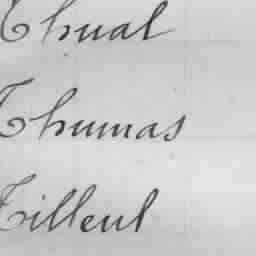 Thual
Thumas
Tilleul